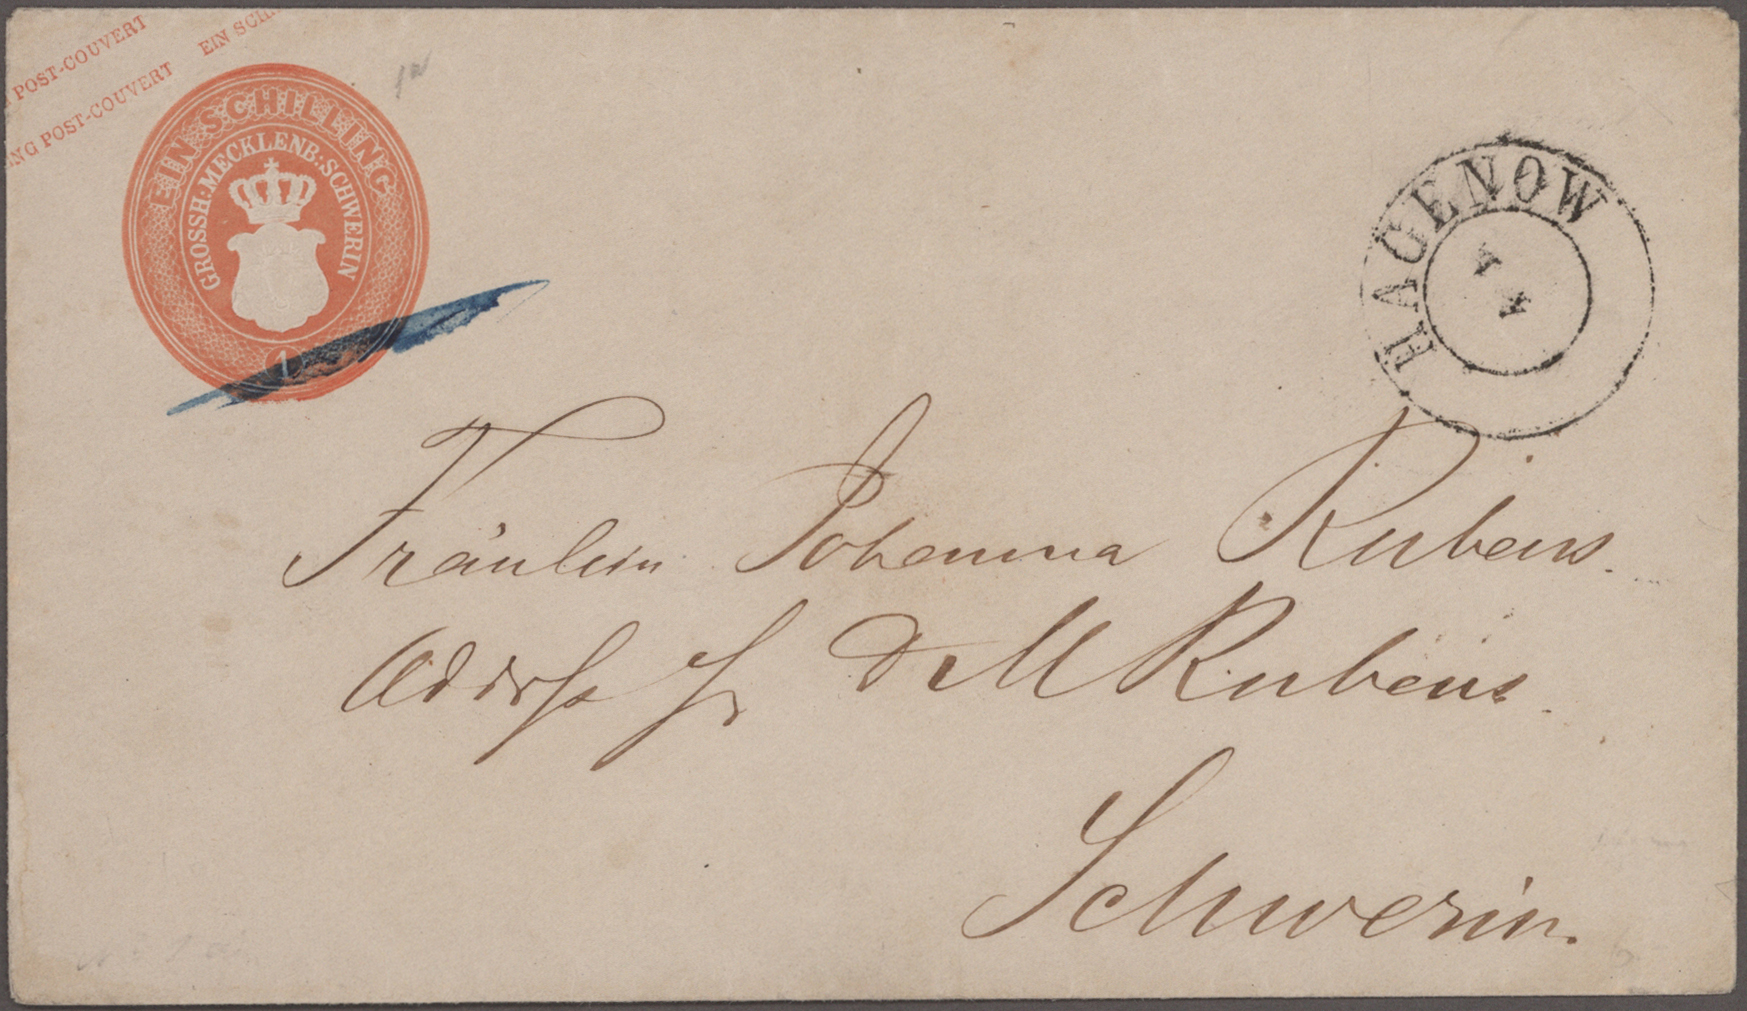 POST-COUVERT EIN SCHI
NG POST-COUVERT
EIN SCHILLING
GROSSH: MECKLENB: SCHWERIN
1
HAGENOW
4
4
Fräulein Johanna Rubens.
Addresse Hr D M Rubens.
Schwerin.